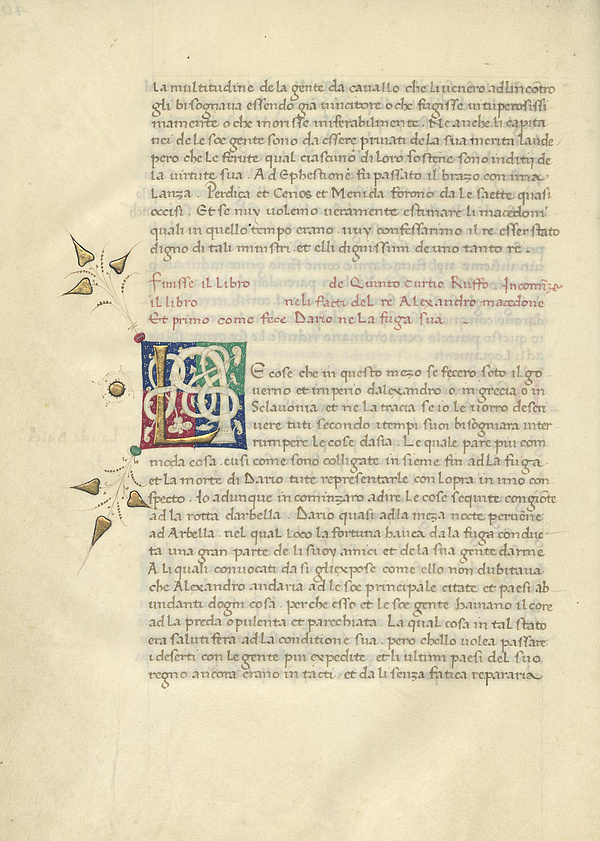 La multitudine de la gente da cavallo che li venero ad lincontro
gli bisognava essendo gia vincitore o che fugisse vituperosissi
mamente o che morisse miserabilmente. Ne anche li capita
nei de le soe gente sono da essere privati de la sua merita laude
pero che le ferite qual ciascuno di loro sostene sono inditij de
la virtute sua. Ad Ephestione fu passato il brazo con una
Lanza. Perdica et Cenos et Menida forono da le saette quasi
occisi. Et se nuy volemo veramente estimare li macedoni
quali in quello tempo erano nuy confessarimo il re esser stato
digno di tali ministri et elli dignissimi de uno tanto re.
Finisse il Libro de Quinto Curtio Ruffo. Incomiza
il libro neli facti del re Alexandro macedone
Et primo come fece Dario ne la fuga sua
LE cose che in questo mezo se fecero soto il go
verno et imperio dalexandro o in grecia o in
Sclavonia et ne la tracia se io le vorro descri
vere tuti secondo i tempi suoi bisognara inter
rumpere le cose dasia. Le quale pare piu com
moda cosa cusi come sono colligate in sieme fin ad la fuga
et la morte di Dario tute representarle con lopra in uno con
specto. Io adunque incominzaro a dire le cose sequite congionte
ad la rotta darbella. Dario quasi ad la meza nocte pervene
ad Arbella. nel qual loco la fortuna havea da la fuga conduc
ta una gran parte de li suoy amici et de la sua gente darme
A li quali convocati da si gli expose come ello non dubitava
che Alexandro andaria ad le soe principale citate et paesi ab
undanti dogni cosa. perche esso et le soe gente havano il core
ad la preda opulenta et parechiata. La qual cosa in tal stato
era salutifera ad la conditione sua. pero chello volea passare
i deserti con le gente piu expedite et li ultimi paesi del suo
regno ancora erano intacti et da li senza fatica repararia